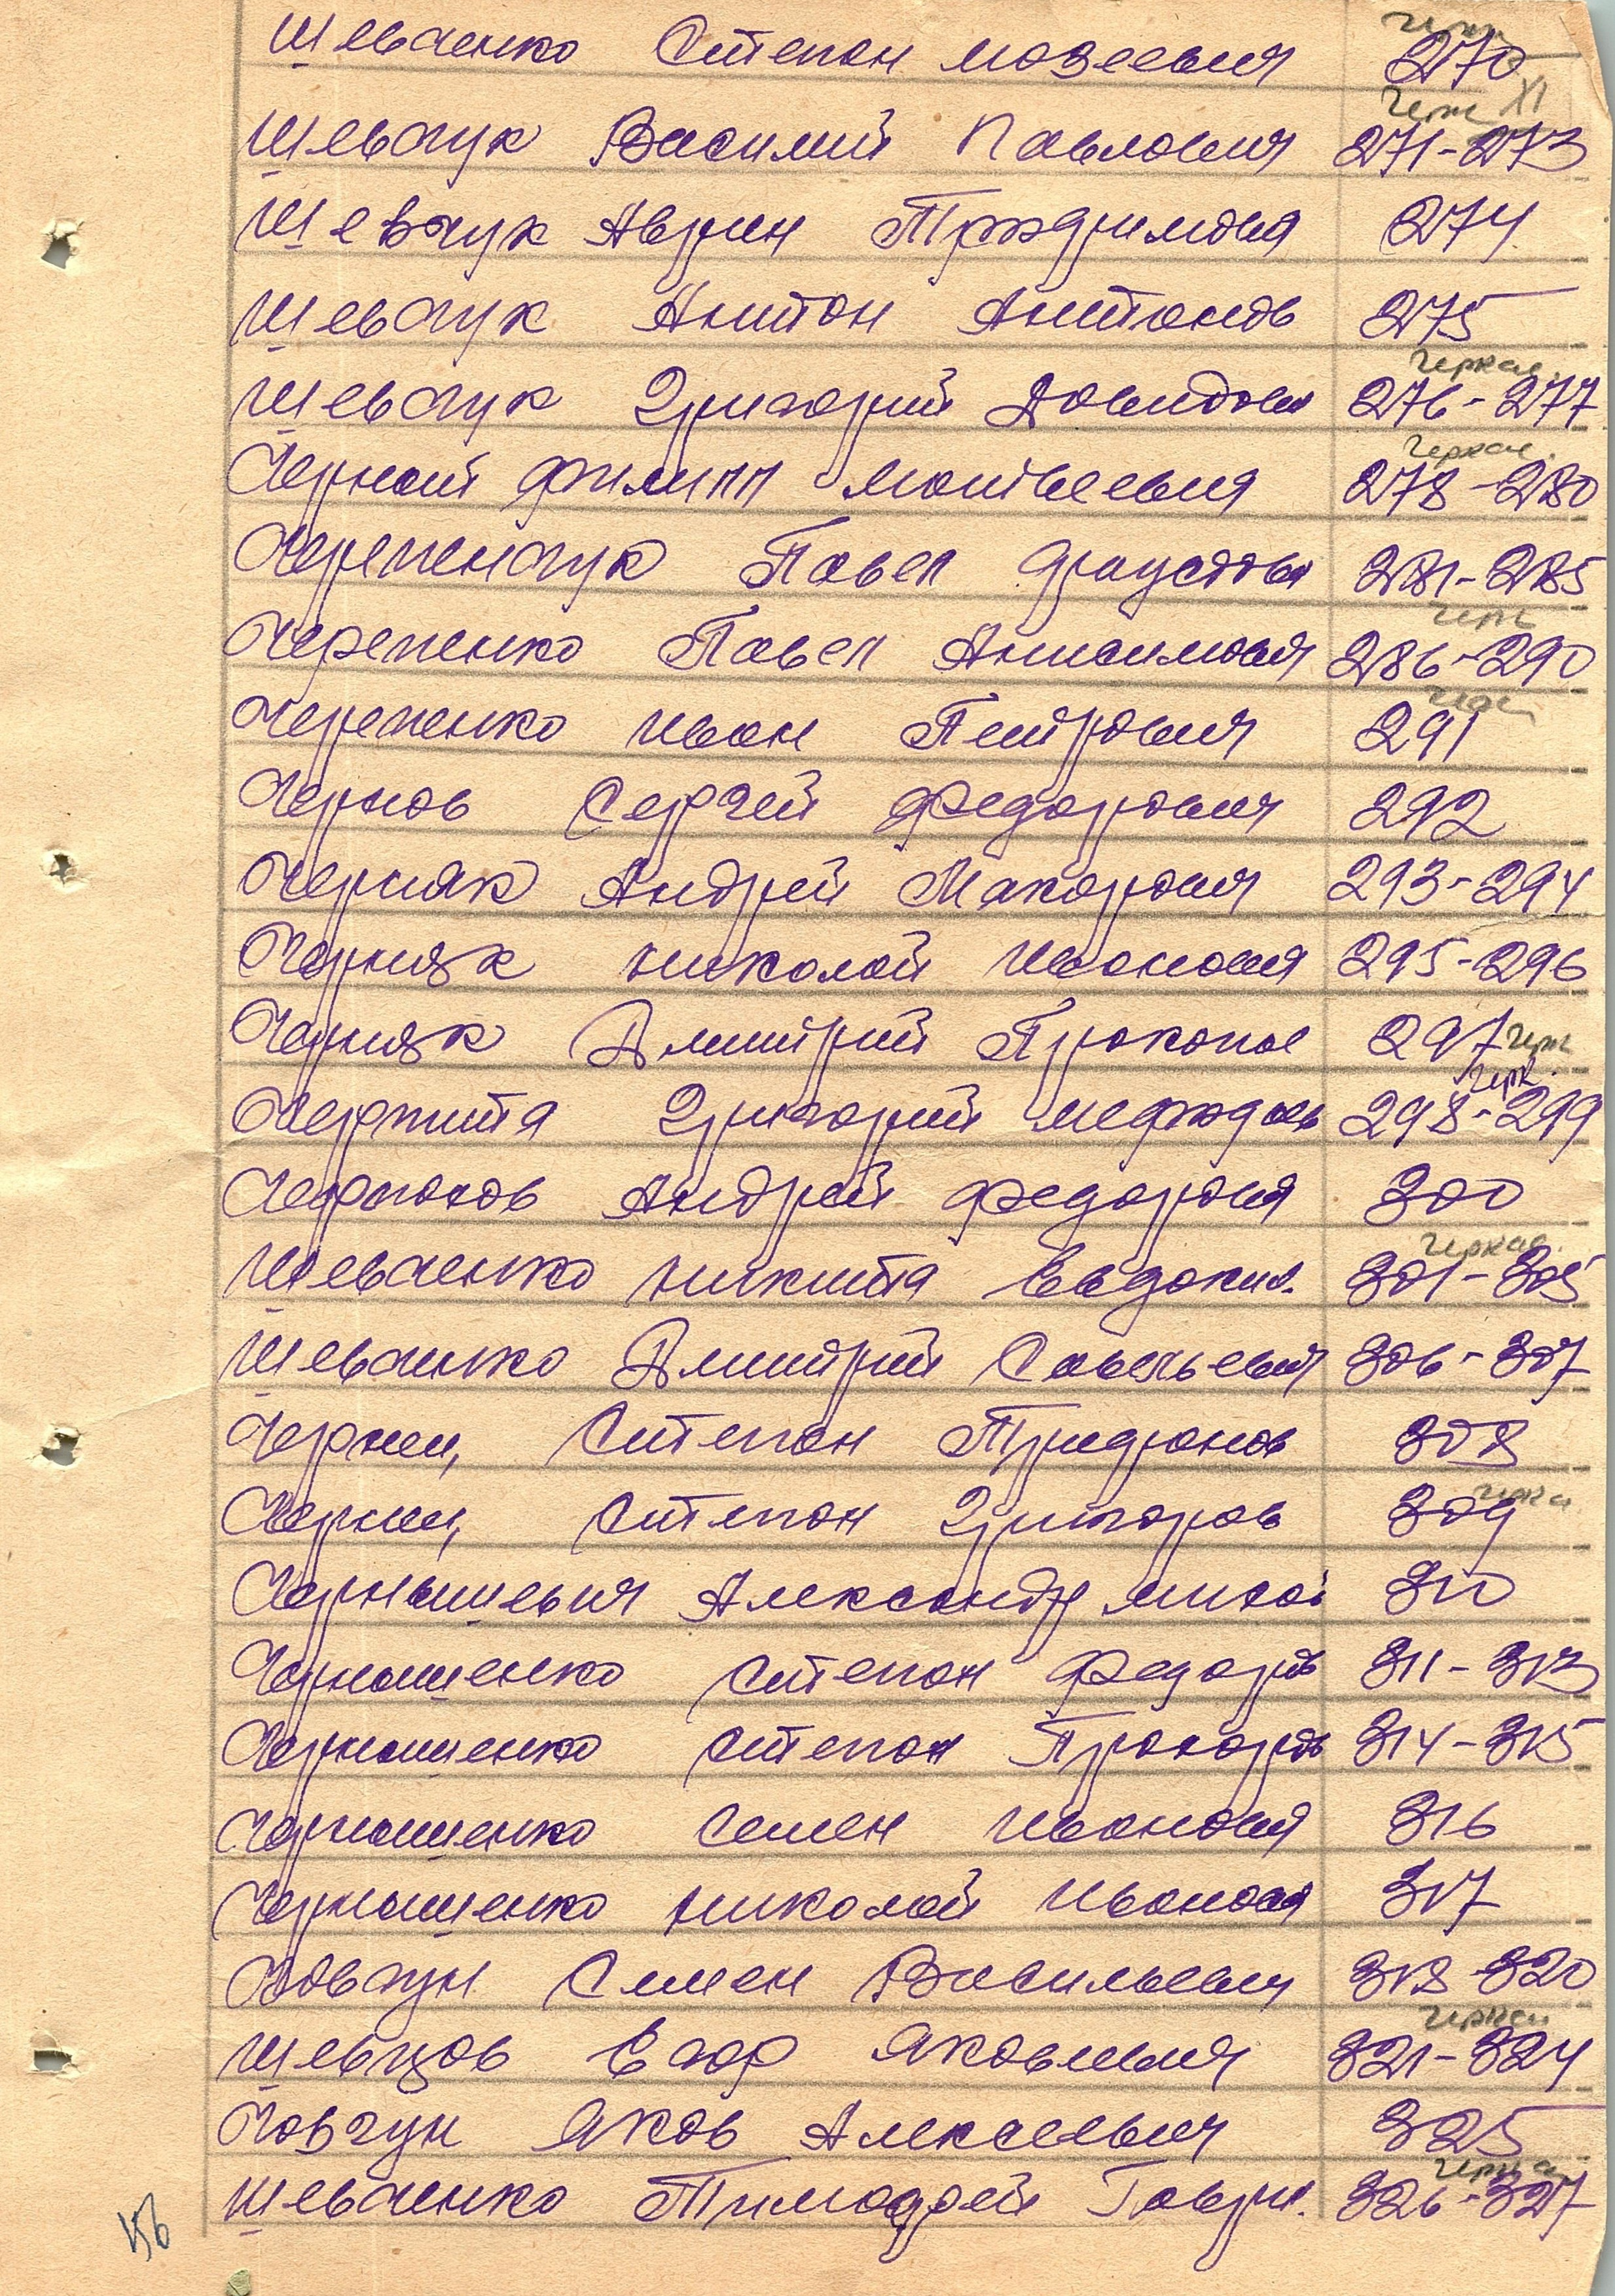 Шевченко Степан Мозеевич 270
Черк XI
Шевчук Василий Павлович 271-273
Шевчук Аврам Трофимович 274
Шевчук Антон Антонов 275
Черкас.
Шевчук Григорий Давидович 276-277
Черкас.
Черный Филипп Матвеевич 278-280
Черепенчук Павел 281-285
Черк
Черепенко Павел Анисимович 286-290
Черепенко Иван Петрович 291
Чернов Сергей Федорович 292
Черняк Андрей Макарович 293-294
Черняк Николай Иванович 295-296
Черняк Дмитрий Прокопов 297 Черк
Черк.
Григорий Мефодиев 298-299
Андрей Федорович 300
Черкас.
Шевченко Никита Евдоким. 301-305
Шевченко Дмитрий Савельевич 306-307
Чернец Степан 308
Черка
Чернец Степан Григоров 309
Чернышевич Александр Михай 310
Чернышенко Степан Федоров 311-313
Чернышенко Степан Прохоров 314-315
Чернышенко Семен Иванович 316
Чернышенко Николай Иванович 317
Човгун Семен Васильевич 318-320
Черкас
Шевцов Егор Яковлевич 321-324
Човгун Яков Алексеевич 325
Черкас
Шевченко Тимофей Гаври. 326-327
156